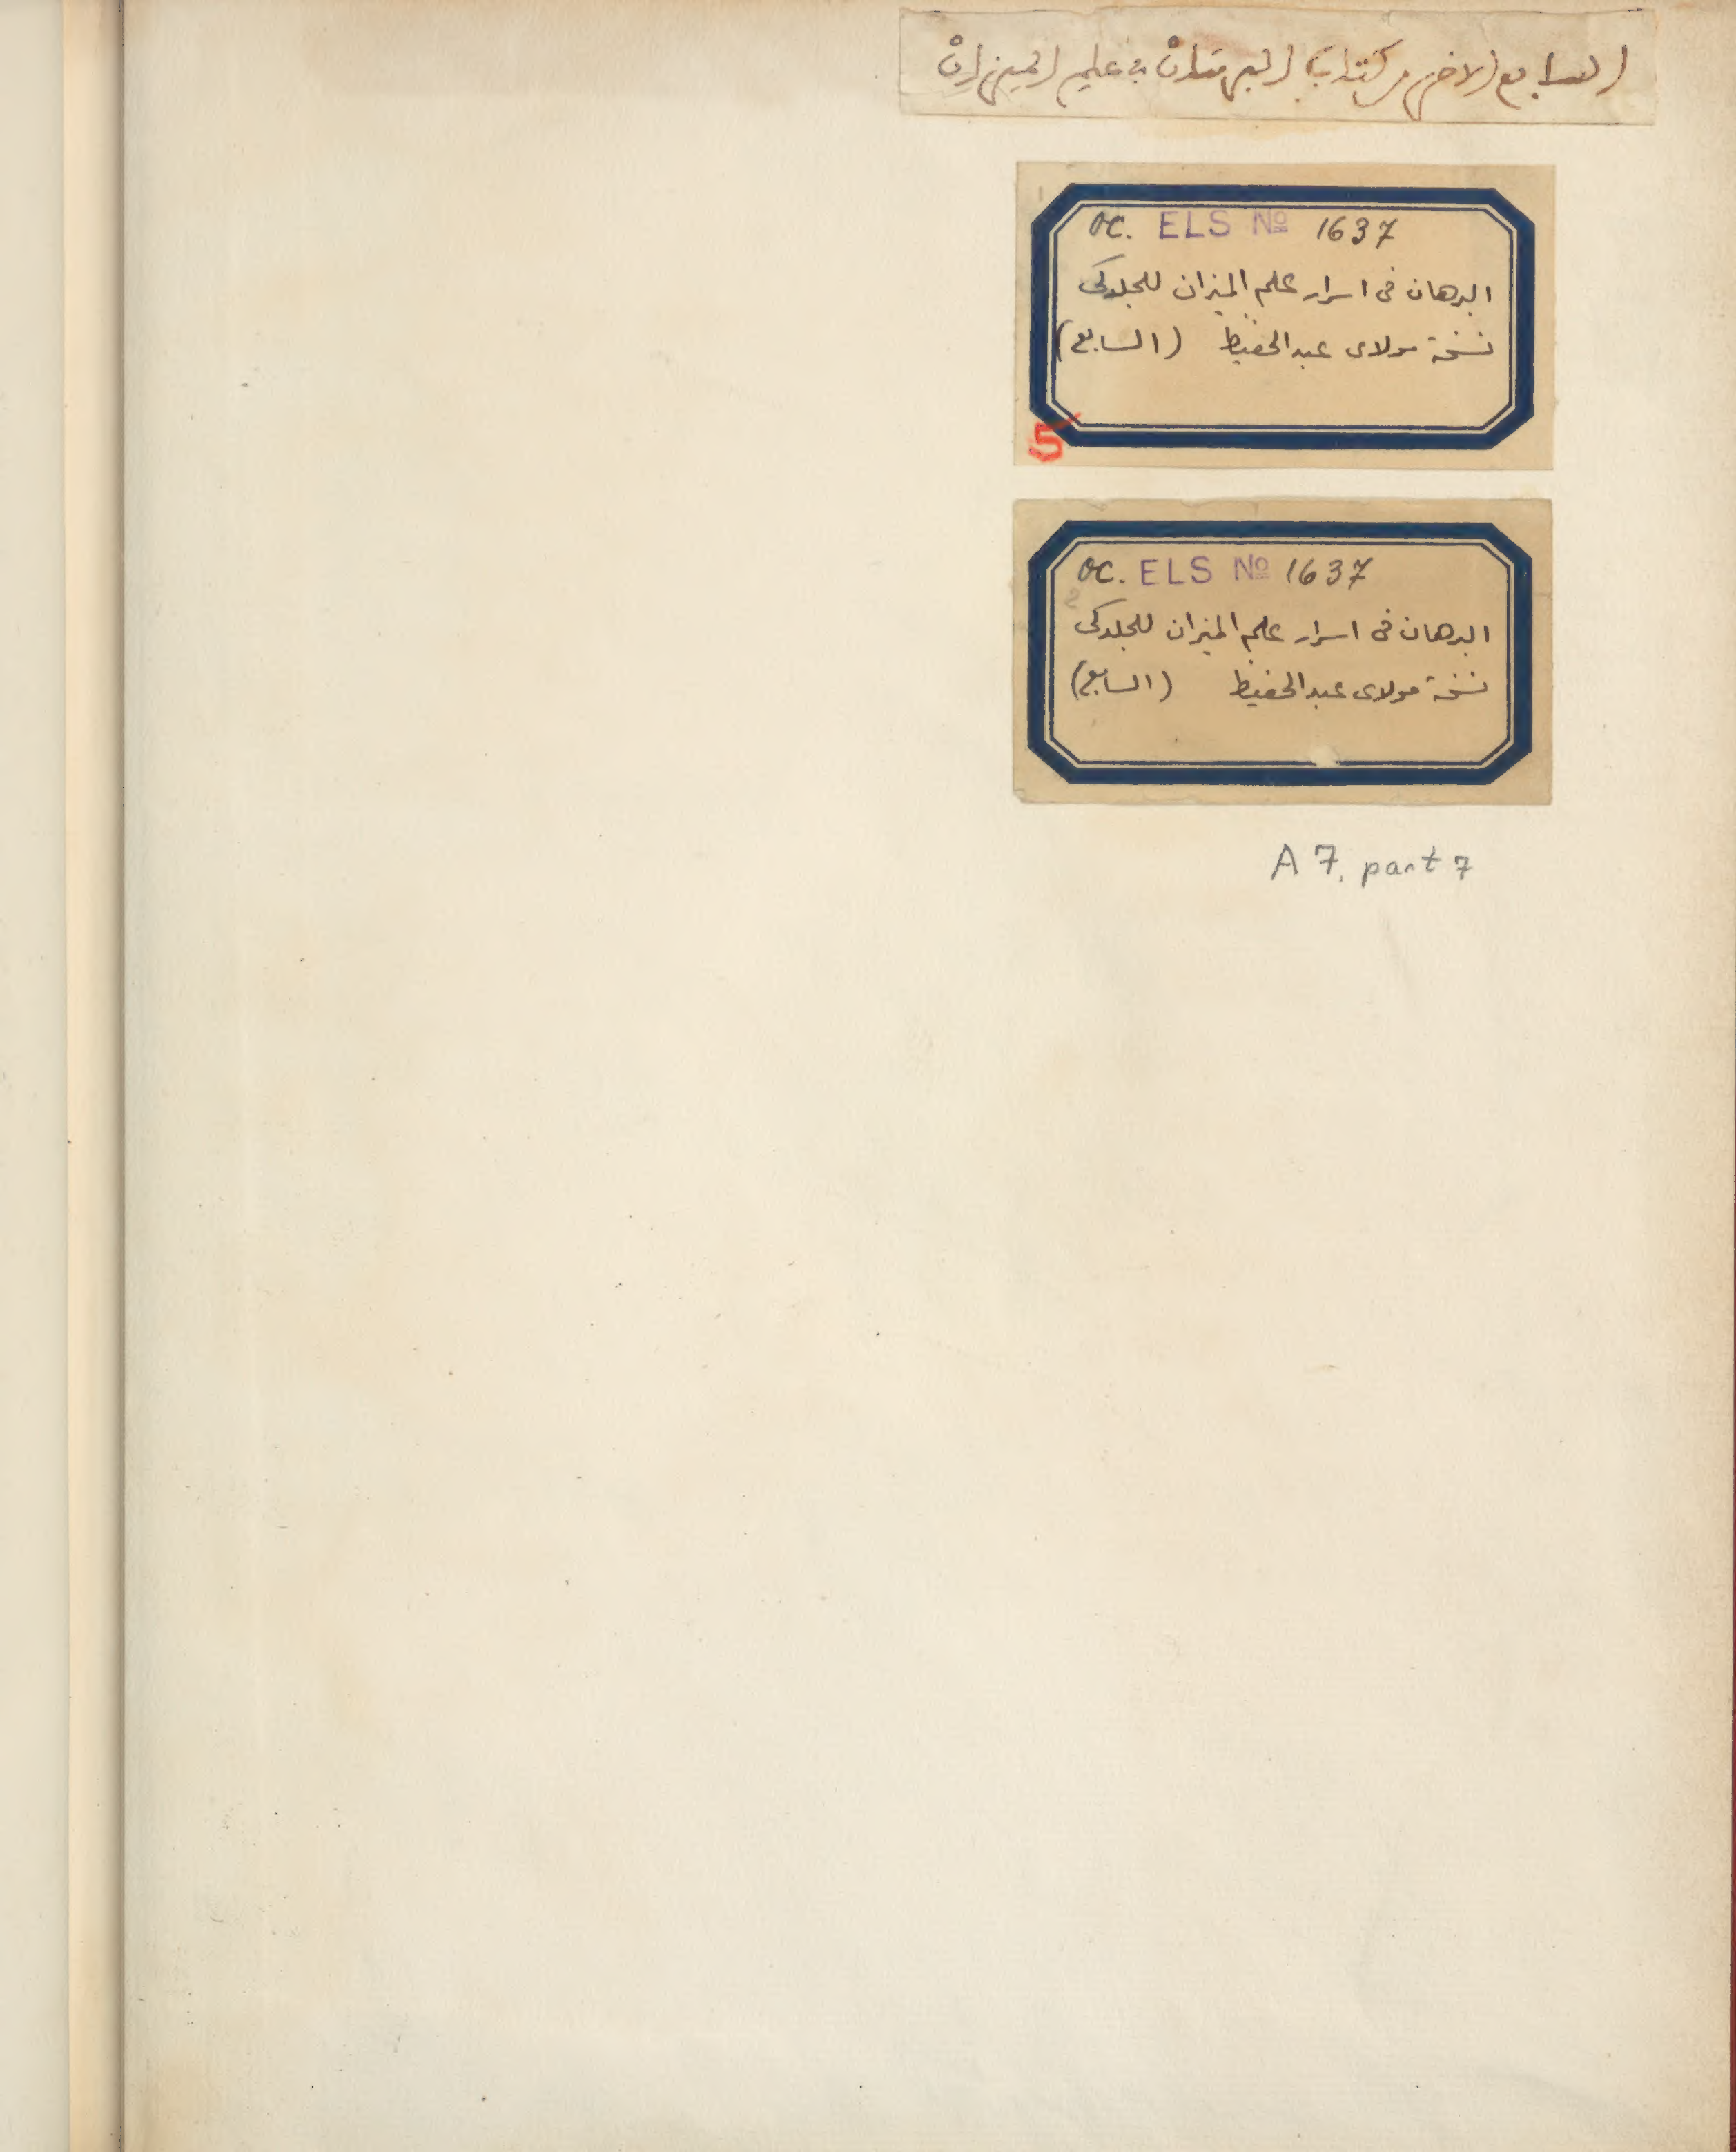 السابع الاخر من كتاب البرهان في علم الميزان
OC. ELS No 1637
البرهان فى اسرار علم الميزان للجلدكى
نسخة مولاى عبد الحفيظ (السابع)
5
OC. ELS No 1637
البرهان فى اسرار علم الميزان للجلدكى
نسخة مولاى عبد الحفيظ (السابع)
A 7, part 7